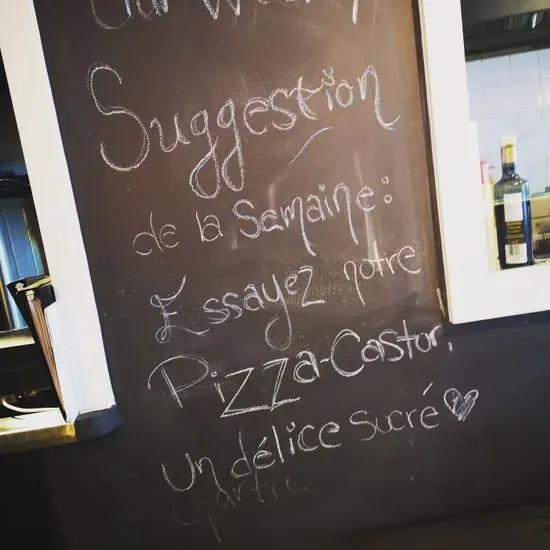 Our Weekly
Suggestion
de la Semaine:
Essayez notre
Pizza-Castor,
un délice sucré